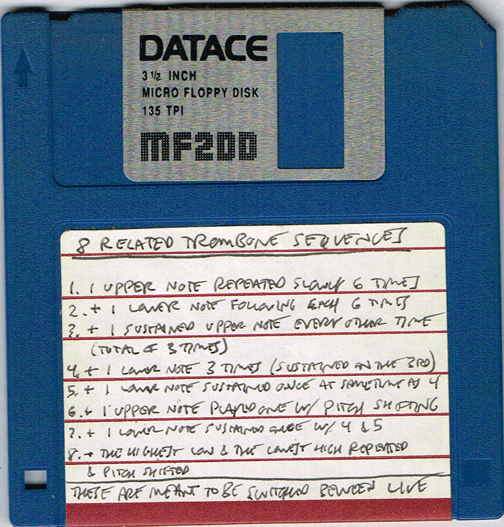 DATACE
3 1/2 INCH
MICRO FLOPPY DISK
135 TPI
MF2DD
8 RELATED TROMBONE SEQUENCES
1. 1 UPPER NOTE REPEATED SLOWLY 6 TIMES
2. + 1 LOWER NOTE FOLLOWING EACH 6 TIMES
3. + 1 SUSTAINED UPPER NOTE EVERY OTHER TIME
(TOTAL OF 3 TIMES)
4. + 1 LOWER NOTE 3 TIMES (SUSTAINED ON THE 3RD)
5. + 1 LOWER NOTE SUSTAINED ONCE AT SAME TIME AS 4
6. + 1 UPPER NOTE PLAYED ONE W/ PITCH SHIFTING
7. + 1 LOWER NOTE SUSTAINED ONCE W/ 4 & 5
8. + THE HIGHEST LOW & THE LOWEST HIGH REPEATED
& PITCH SHIFTED
THESE ARE MEANT TO BE SWITCHED BETWEEN LIVE